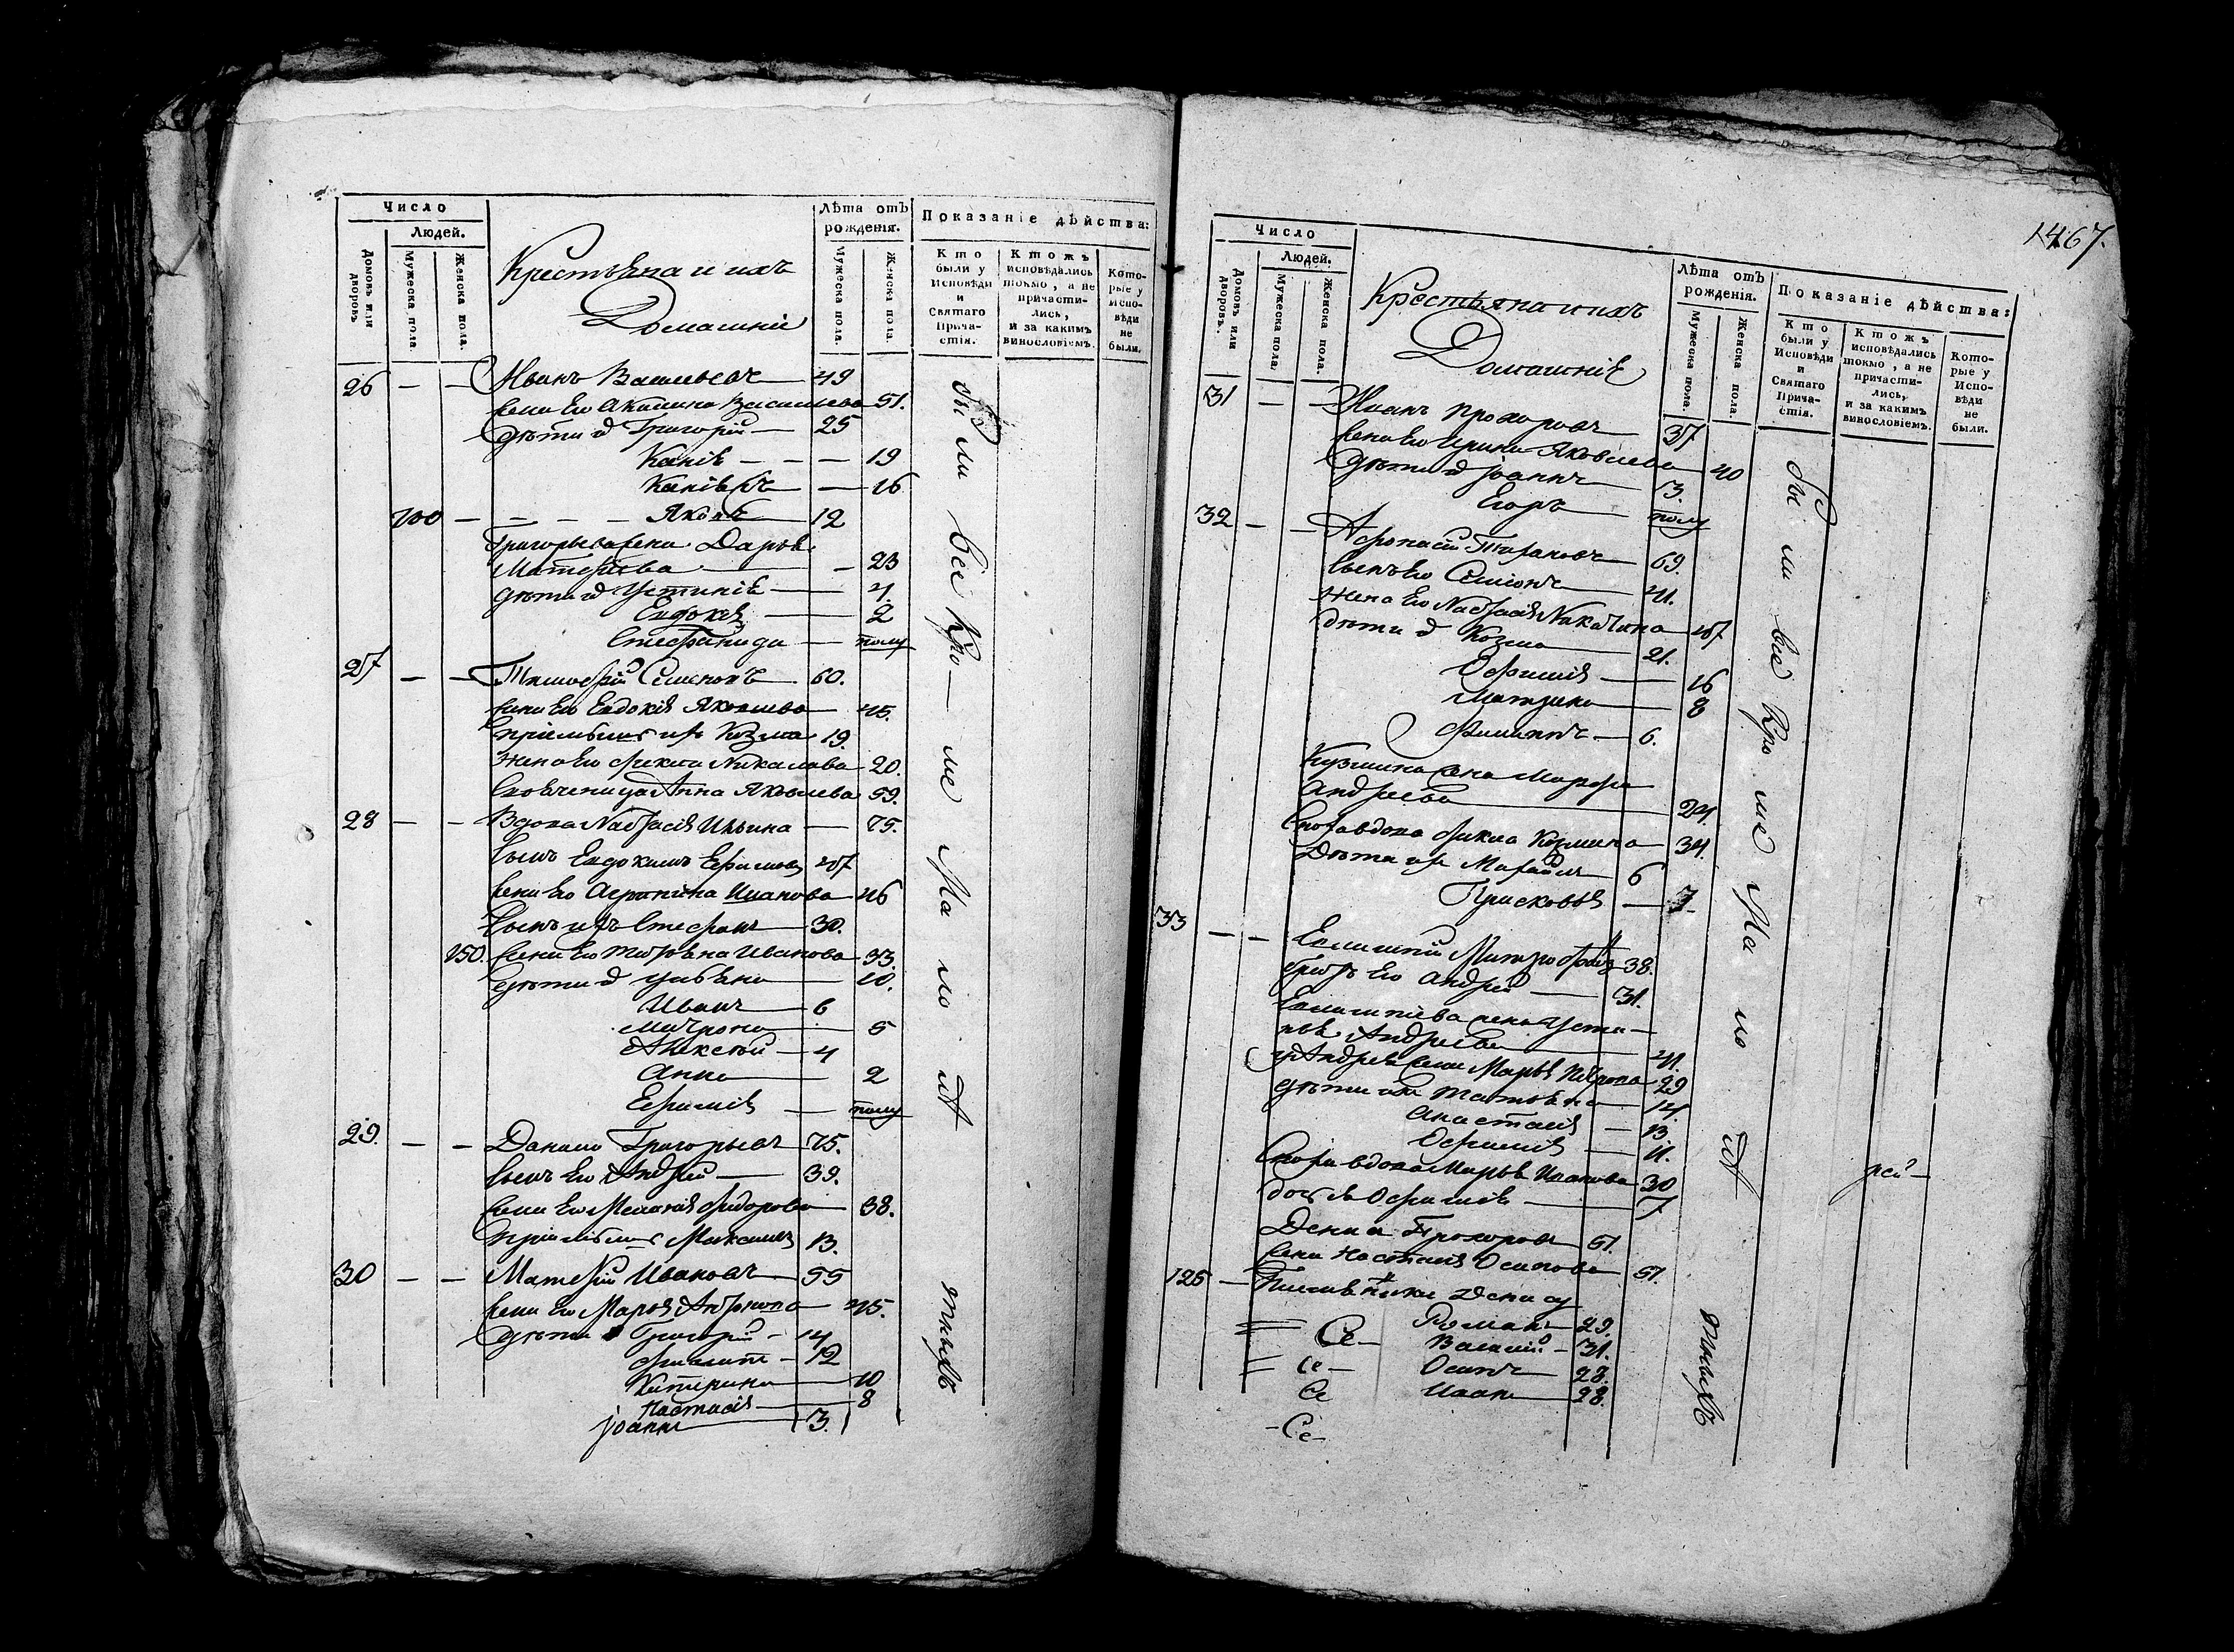 Число
Людей.
Домовъ или дворовъ.
Мужеска пола.
Женска пола.
Крестьяна и ихъ
Домашніи
Лѣта отъ рожденія.
Мужеска пола.
Женска пола.
Показаніе дѣйства:
Кто были у Исповѣди и Святаго Прича-стія.
Ктожъ исповѣдались токмо, а не причасти-лись, и за какимъ винословіемъ.
Кото-рые у Испо-вѣди не были.
26 — — Иванъ Васильевъ — 49
жена Его Акилина Васильева 51.
дѣти Григорій — 25
— — — 19
— 16
100 — — — — Яковъ — 12
Григорьева жена Дарья
— 23
дѣти Устиніѣ — 4.
Евдокія — 2
Стефанида — полу
27 — — Тимофей Семеновъ — 60.
жена Его Евдокія Яковлева — 45.
Козма 19.
жена Его Фекла Николаева 20.
Анна Яковлева 59.
28 — — Вдова Настасія Ильина — 75.
сынъ Евдокимъ Ефимовъ 47
жена Его Агрипина Иванова 46
сынъ ихъ Стефанъ — 30.
150. жена Его Иванова 33.
дѣти Ульяна — 10.
Иванъ — 6
Матрона — 5
Алексѣй — 4
Анна — 2
Ефимія — полу
29. — — Данило Григорьевъ 75.
сынъ Его Андрей — 39.
жена Его Меланія Федорова — 38.
Максимъ 13.
30 — — Матвѣй Ивановъ — 55
жена Его Марія — 45.
дѣти Григорій — 14
Филиппъ — 12
Катерина — 10
Настасія — 8
Іоаннъ — 3.
были всѣ кро — мѣ мало лѣтныхъ
1467.
Число
Людей.
Домовъ или дворовъ.
Мужеска пола.
Женска пола.
Крестьяна и ихъ
Домашніѣ
Лѣта отъ рожденія.
Мужеска пола.
Женска пола.
Показаніе дѣйства:
Кто были у Исповѣди и Святаго Прича-стія.
Ктожъ исповѣдались токмо, а не причасти-лись, и за какимъ винословіемъ.
Кото-рые у Испо-вѣди не были.
31 — — Иванъ Прохоровъ — 37
жена Его Ирина Яковлева 40
дѣти Іоаннъ — 3.
Егоръ — полу
32 — — Афонасій — 69.
сынъ Его Семіонъ — 41.
жена Его Настасія Никитина 47
дѣти Козма — 21.
Ефимія — 16
Матрина — 8
Филипъ — 6.
Кузмина жена Марфа
Андреева — 24.
Сноха вдова Фекла Козмина 34.
дѣти ихъ Михаилъ 6
Прасковья — 7
33 — — 38.
братъ Его Андрей — 31.
жена Усти-
нія Андреева — 41.
Андрея жена Марья Петрова 29
дѣти ихъ Татьяна — 14.
Анастасія — 13
Ефимія — 11.
Сноха вдова Марья Иванова 30
дочь Ефимія — 7
Денисъ Прохоровъ 51.
жена Настасія Осипова 51.
125 — Денису
Романъ 29.
Се — Василій — 31.
Се — Осипъ 28.
Се Иванъ 28.
— Се —
были всѣ кро мѣ мало лѣтныхъ